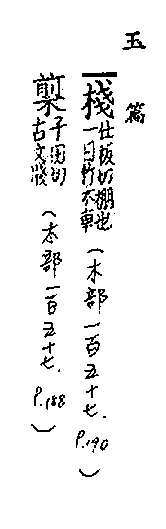 玉篇
棧 仕板切棚也
一曰竹木車
（木部一百五十七. P.190）
子田切
古文牋
（木部一百五十七. P.188）